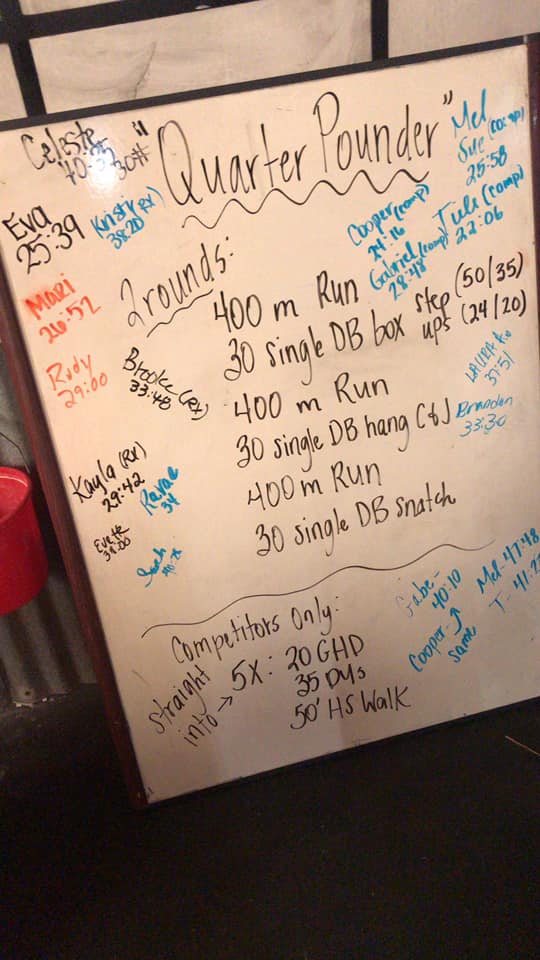 Celeste
40:32
30#
"Quarter Pounder"
Mel
Sue (comp)
25:58
Eva
25:39
Kristin (RX)
38:20
Cooper (comp)
24:16
Gabriel (comp)
28:48
(comp)
22:06
Mari
26:52
2 rounds:
400 m Run
30 single DB box step ups (50/35) (24/20)
Rudy
29:00
Brooke (RX)
33:48
400 m Run
37:51
30 single DB hang C&J
Branden
33:30
Kayla (RX)
29:42
Renae
34
400 m Run
Evette
38:00
30 single DB snatch
Competitors Only:
Gabe-
40:10
Mel-47:48
Cooper-
same
straight
into →
5X: 20 GHD
35 DUs
50' HS Walk